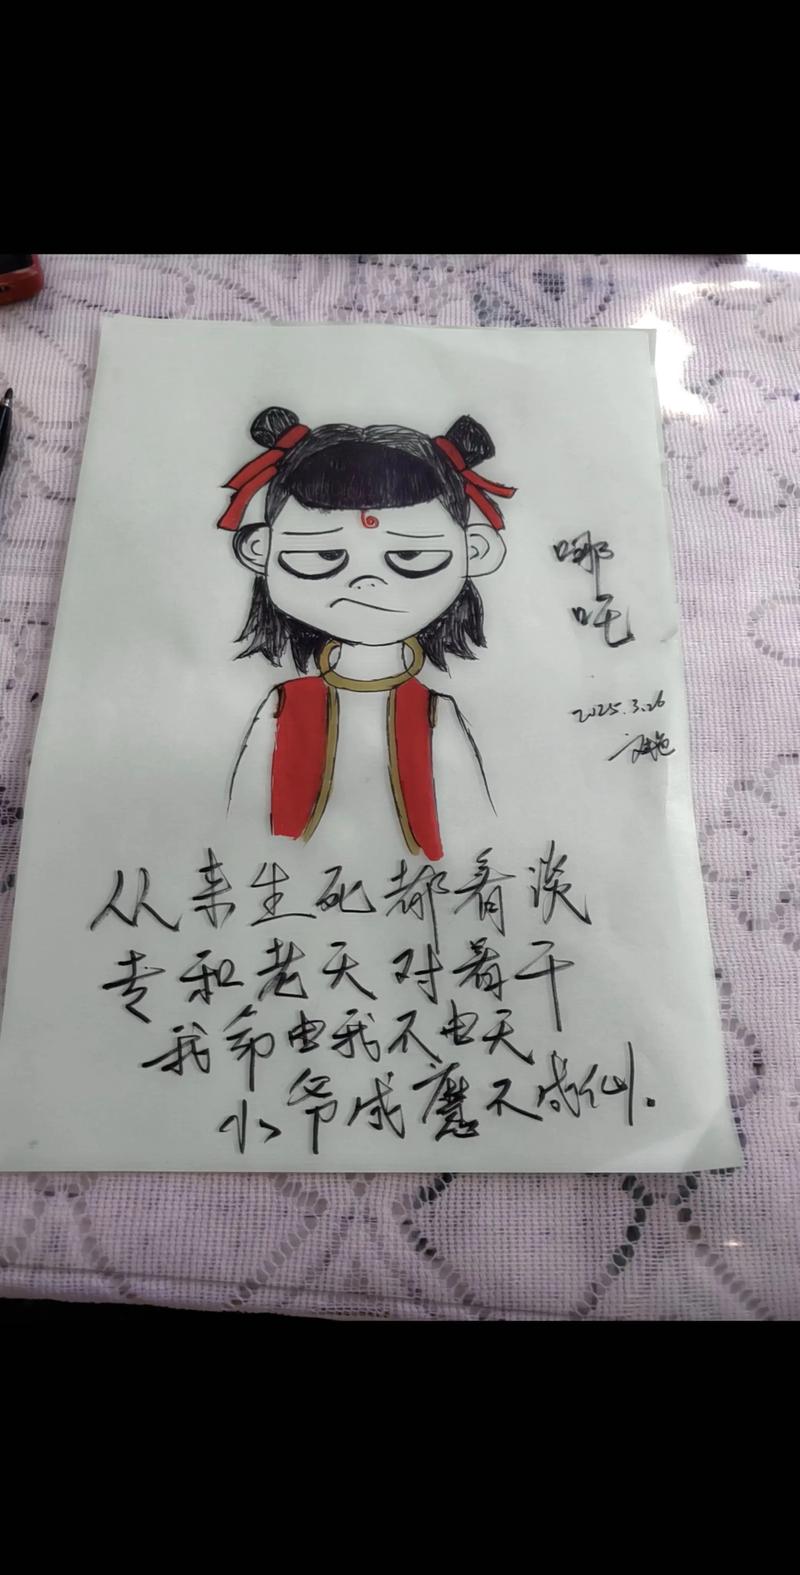 哪
吒
2025.3.26
从来生死都看淡
专和老天对着干
我命由我不由天
小爷成魔不成仙.